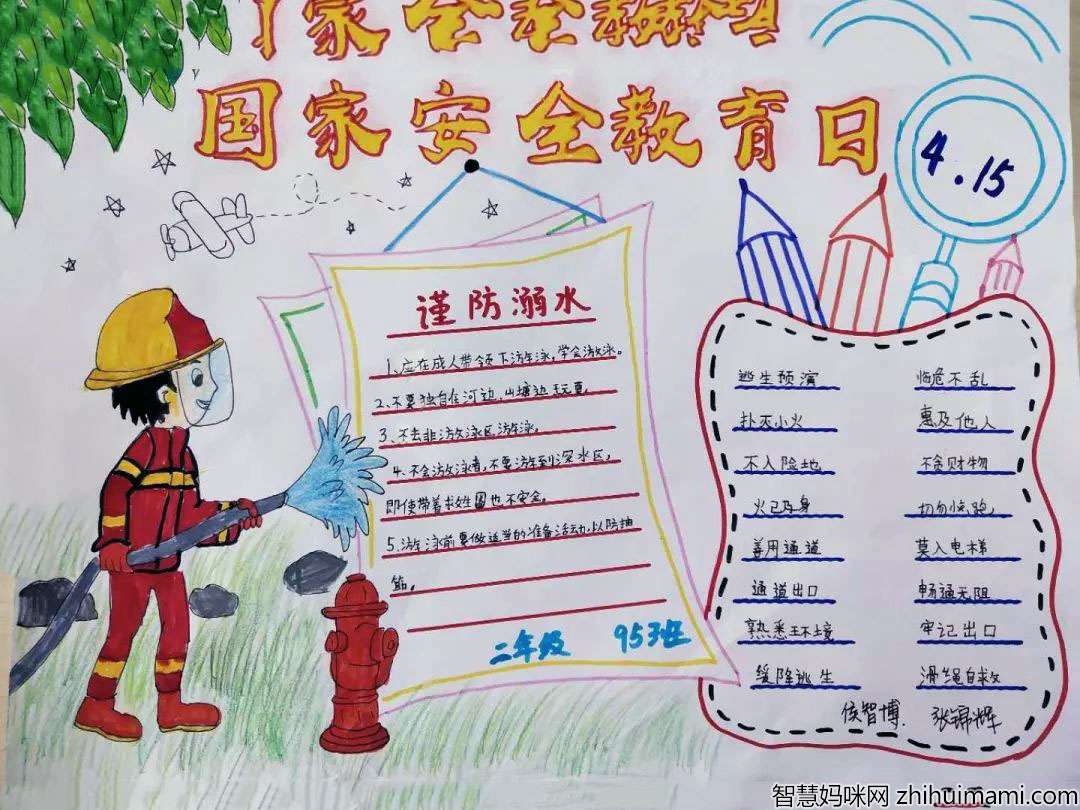 国家安全教育日
4.15
谨防溺水
1、应在成人带领下游泳,学会游泳。
2、不要独自在河边、山塘边玩耍。
3、不去非游泳区游泳。
4、不会游泳者,不要游到深水区,
即使带着救生圈也不安全。
5、游泳前要做适当的准备活动,以防抽
筋。
二年级 953班
逃生预演 临危不乱
扑灭小火 惠及他人
不入险地 不贪财物
火已及身 切勿惊跑
善用通道 莫入电梯
通道出口 畅通无阻
熟悉环境 牢记出口
缓降逃生 滑绳自救
侯智博. 张锦辉
智慧妈咪网 zhihuimami.com